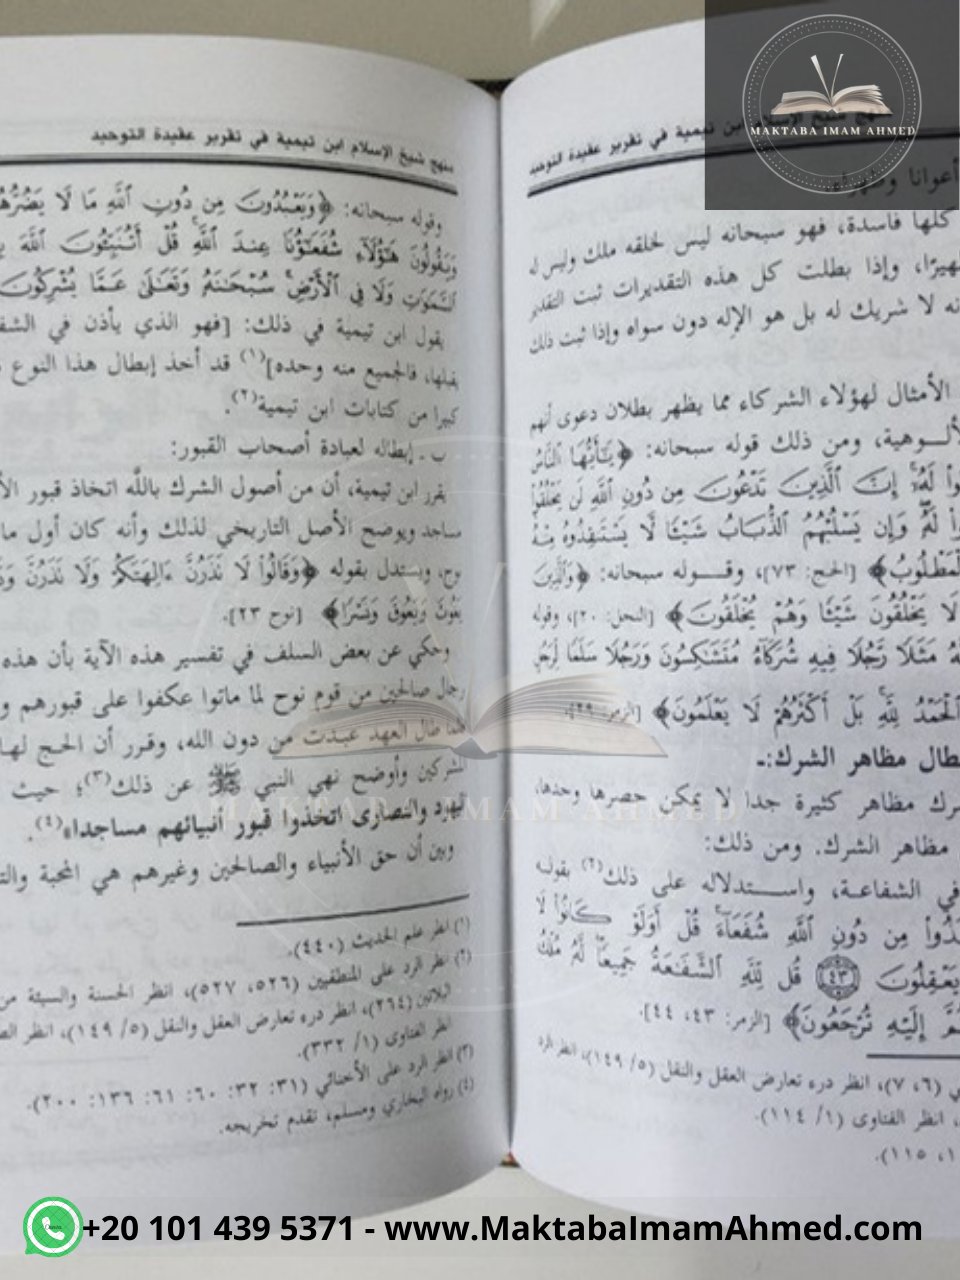 MAKTABA IMAM AHMED
منهج شيخ الإسلام ابن تيمية في تقرير عقيدة التوحيد
أعوانا وظهراء.
كلها فاسدة، فهو سبحانه ليس لخلقه ملك وليس له
ظهيرًا، وإذا بطلت كل هذه التقديرات ثبت التقدير
لا شريك له بل هو الإله دون سواه وإذا ثبت ذلك
الأمثال لهؤلاء الشركاء مما يظهر بطلان دعوى أنهم
الألوهية، ومن ذلك قوله سبحانه: ﴿يَٰٓأَيُّهَا ٱلنَّاسُ
لَهُۥٓ إِنَّ ٱلَّذِينَ تَدْعُونَ مِن دُونِ ٱللَّهِ لَن يَخْلُقُوا۟
لَهُۥ وَإِن يَسْلُبْهُمُ ٱلذُّبَابُ شَيْـًٔا لَّا يَسْتَنقِذُوهُ مِنْهُ
ٱلْمَطْلُوبُ﴾ [الحج: ٧٣]، وقوله سبحانه: ﴿وَٱلَّذِينَ
لَا يَخْلُقُونَ شَيْـًٔا وَهُمْ يُخْلَقُونَ﴾ [النحل: ٢٠]، وقوله
مَثَلًا رَّجُلًا فِيهِ شُرَكَآءُ مُتَشَٰكِسُونَ وَرَجُلًا سَلَمًا لِّرَجُلٍ
ٱلْحَمْدُ لِلَّهِ بَلْ أَكْثَرُهُمْ لَا يَعْلَمُونَ﴾ [الزمر: ٢٩].
مظاهر الشرك:ـ
مظاهر كثيرة جدا لا يمكن حصرها وحدها،
مظاهر الشرك. ومن ذلك:
في الشفاعة، واستدلاله على ذلك(٢) بقوله
مِن دُونِ ٱللَّهِ شُفَعَآءَ قُلْ أَوَلَوْ كَانُوا۟ لَا
يَعْقِلُونَ ٤٣ قُل لِّلَّهِ ٱلشَّفَٰعَةُ جَمِيعًا لَّهُۥ مُلْكُ
إِلَيْهِ تُرْجَعُونَ﴾ [الزمر: ٤٣، ٤٤].
(٦، ٧)، انظر درء تعارض العقل والنقل (٥/ ١٤٩)، انظر الرد
انظر الفتاوى (١/ ١١٤).
١١٥).
منهج شيخ الإسلام ابن تيمية في تقرير عقيدة التوحيد
وقوله سبحانه: ﴿وَيَعْبُدُونَ مِن دُونِ ٱللَّهِ مَا لَا يَضُرُّهُمْ
وَيَقُولُونَ هَٰٓؤُلَآءِ شُفَعَٰٓؤُنَا عِندَ ٱللَّهِ قُلْ أَتُنَبِّـُٔونَ ٱللَّهَ
ٱلسَّمَٰوَٰتِ وَلَا فِى ٱلْأَرْضِ سُبْحَٰنَهُۥ وَتَعَٰلَىٰ عَمَّا يُشْرِكُونَ
يقول ابن تيمية في ذلك: [فهو الذي يأذن في
يقبلها، فالجميع منه وحده](١) قد أخذ إبطال هذا النوع
كبيرا من كتابات ابن تيمية(٢).
ب ـ إبطاله لعبادة أصحاب القبور:
يقرر ابن تيمية، أن من أصول الشرك بالله اتخاذ قبور
مساجد ويوضح الأصل التاريخي لذلك وأنه كان أول ما
نوح، ويستدل بقوله ﴿وَقَالُوا۟ لَا تَذَرُنَّ ءَالِهَتَكُمْ وَلَا تَذَرُنَّ
يَغُوثَ وَيَعُوقَ وَنَسْرًا﴾ [نوح ٢٣].
وحكي عن بعض السلف في تفسير هذه الآية بأن هذه
رجال صالحين من قوم نوح لما ماتوا عكفوا على قبورهم
طال العهد عبدت من دون الله، وقرر أن الحج
المشركين وأوضح نهي النبي ﷺ عن ذلك(٣)؛ حيث
اليهود والنصارى اتخذوا قبور أنبيائهم مساجدا»(٤).
وبين أن حق الأنبياء والصالحين وغيرهم هي المحبة
(١) انظر علم الحديث (٤٤٠).
(٢) انظر الرد على المنطقيين (٥٢٦، ٥٢٧)، انظر الحسنة والسيئة
(٢٦٤)، انظر درء تعارض العقل والنقل (٥/ ١٤٩)، انظر
انظر الفتاوى (١/ ٣٣٢).
(٣) انظر الرد على الأخنائي (٣١: ٣٢: ٦٠: ٦١: ١٣٦: ٢٠٠).
(٤) رواه البخاري ومسلم، تقدم تخريجه.
MAKTABA IMAM AHMED
+20 101 439 5371 - www.MaktabaImamAhmed.com